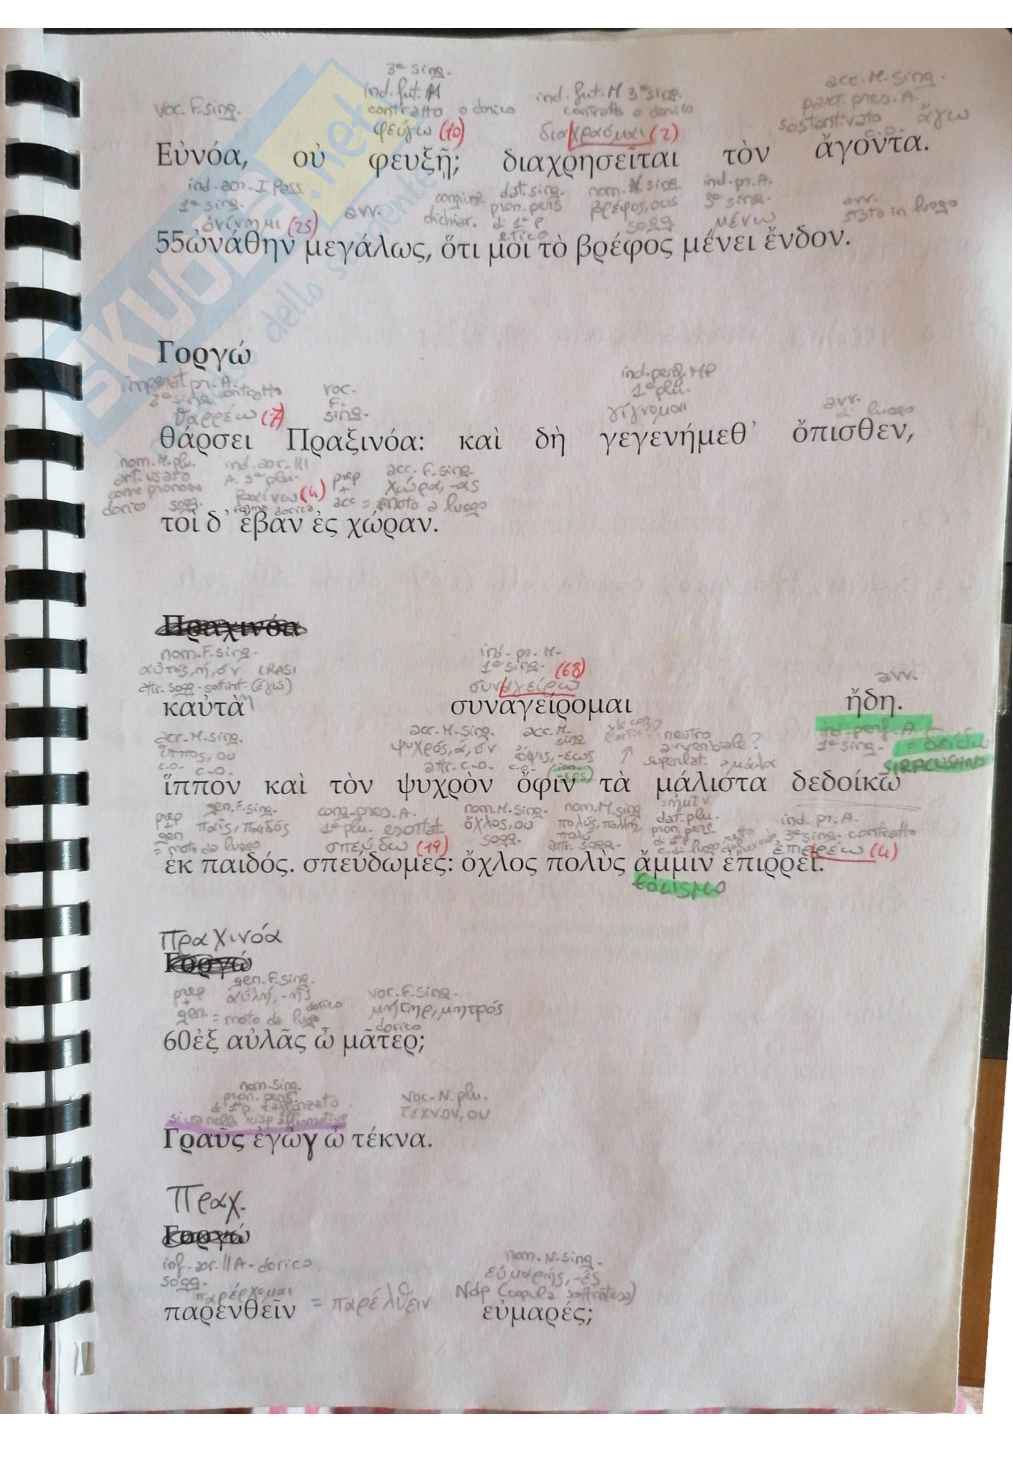 3ª sing.
ind. fut. M
voc. F. sing.
contratto o dorico
φεύγω (10)
ind. fut. M 3ª sing.
contratto o dorico
(2)
acc. M. sing.
part. pres. A.
sostantivato ἄγω
Εὐνόα, οὐ φευξῇ; διαχρησεῖται τὸν ἄγοντα.
ind. aor. I Pass
1ª sing.
ὀνίνημι (25)
avv.
dichiar.
dat. sing.
pron. pers
d 1ª p.
nom. N sing
βρέφος, ους
sogg
ind. pr. A.
3ª sing.
μένω
avv.
stato in luogo
55ὠνάθην μεγάλως, ὅτι μοι τὸ βρέφος μένει ἔνδον.
Γοργώ
imperat pr. A.
2ª sing contratto
θαρρέω (7)
voc.
F.
sing.
ind. perf. MP
1ª plu.
γίγνομαι
avv.
d luogo
θάρσει Πραξινόα: καὶ δὴ γεγενήμεθ᾽ ὄπισθεν,
nom. M. plu.
art. usato
come pronome
dorico sogg.
ind. aor. III
A. 3ª plu.
βαίνω (4)
prep
+
acc = moto a luogo
acc. F. sing.
χώρα, -ας
τοὶ δ᾽ ἔβαν ἐς χώραν.
Πραχινόα
nom. F. sing.
αὐτός, ή, όν CRASI
attr. sogg - sottint - (ἐγώ)
ind. pr. M.
1ª sing. (68)
συναγείρω
avv.
καὐτὰ συναγείρομαι ἤδη.
acc. M. sing.
ἵππος, ου
c.o.
acc. M. sing
ψυχρός, ά, όν
attr. c.o.
acc. M.
sing
ὄφις, -εως
c.o.
neutro
avverbiale?
superlat. μάλα
ind. perf. A.
1ª sing. = δείδω
SIRACUSANO
ἵππον καὶ τὸν ψυχρὸν ὄφιν τὰ μάλιστα δεδοίκω
prep
gen
= moto da luogo
gen. F. sing.
παῖς, παιδός
cong. pres. A.
1ª plu. esortat.
σπεύδω (19)
nom. M. sing
ὄχλος, ου
sogg.
nom. M. sing
πολύς, πολλή
πολύ
attr. sogg.
ἡμῖν
dat. plu.
pron pers
ind. pr. A.
3ª sing. contratto
ἐπιρρέω (4)
ἐκ παιδός. σπεύδωμες: ὄχλος πολὺς ἄμμιν ἐπιρρεῖ.
EOLISMO
Πραχινόα
Γοργώ
prep
+
gen. = moto da luogo
gen. F. sing.
αὐλή, -ῆς
dorico
voc. F. sing.
μήτηρ, μητρός
dorico
60ἐξ αὐλᾶς ὦ μᾶτερ;
nom. sing.
pron. pers.
voc. N. plu.
τέκνον, ου
Γραῦς ἐγώγ ὦ τέκνα.
Πραχ.
Γοργώ
inf. aor. II A - dorico
sogg.
παρέρχομαι
= παρέλθειν
nom. N. sing.
εὐμαρής, -ές
Ndp (copula sottintesa)
παρενθεῖν εὐμαρές;